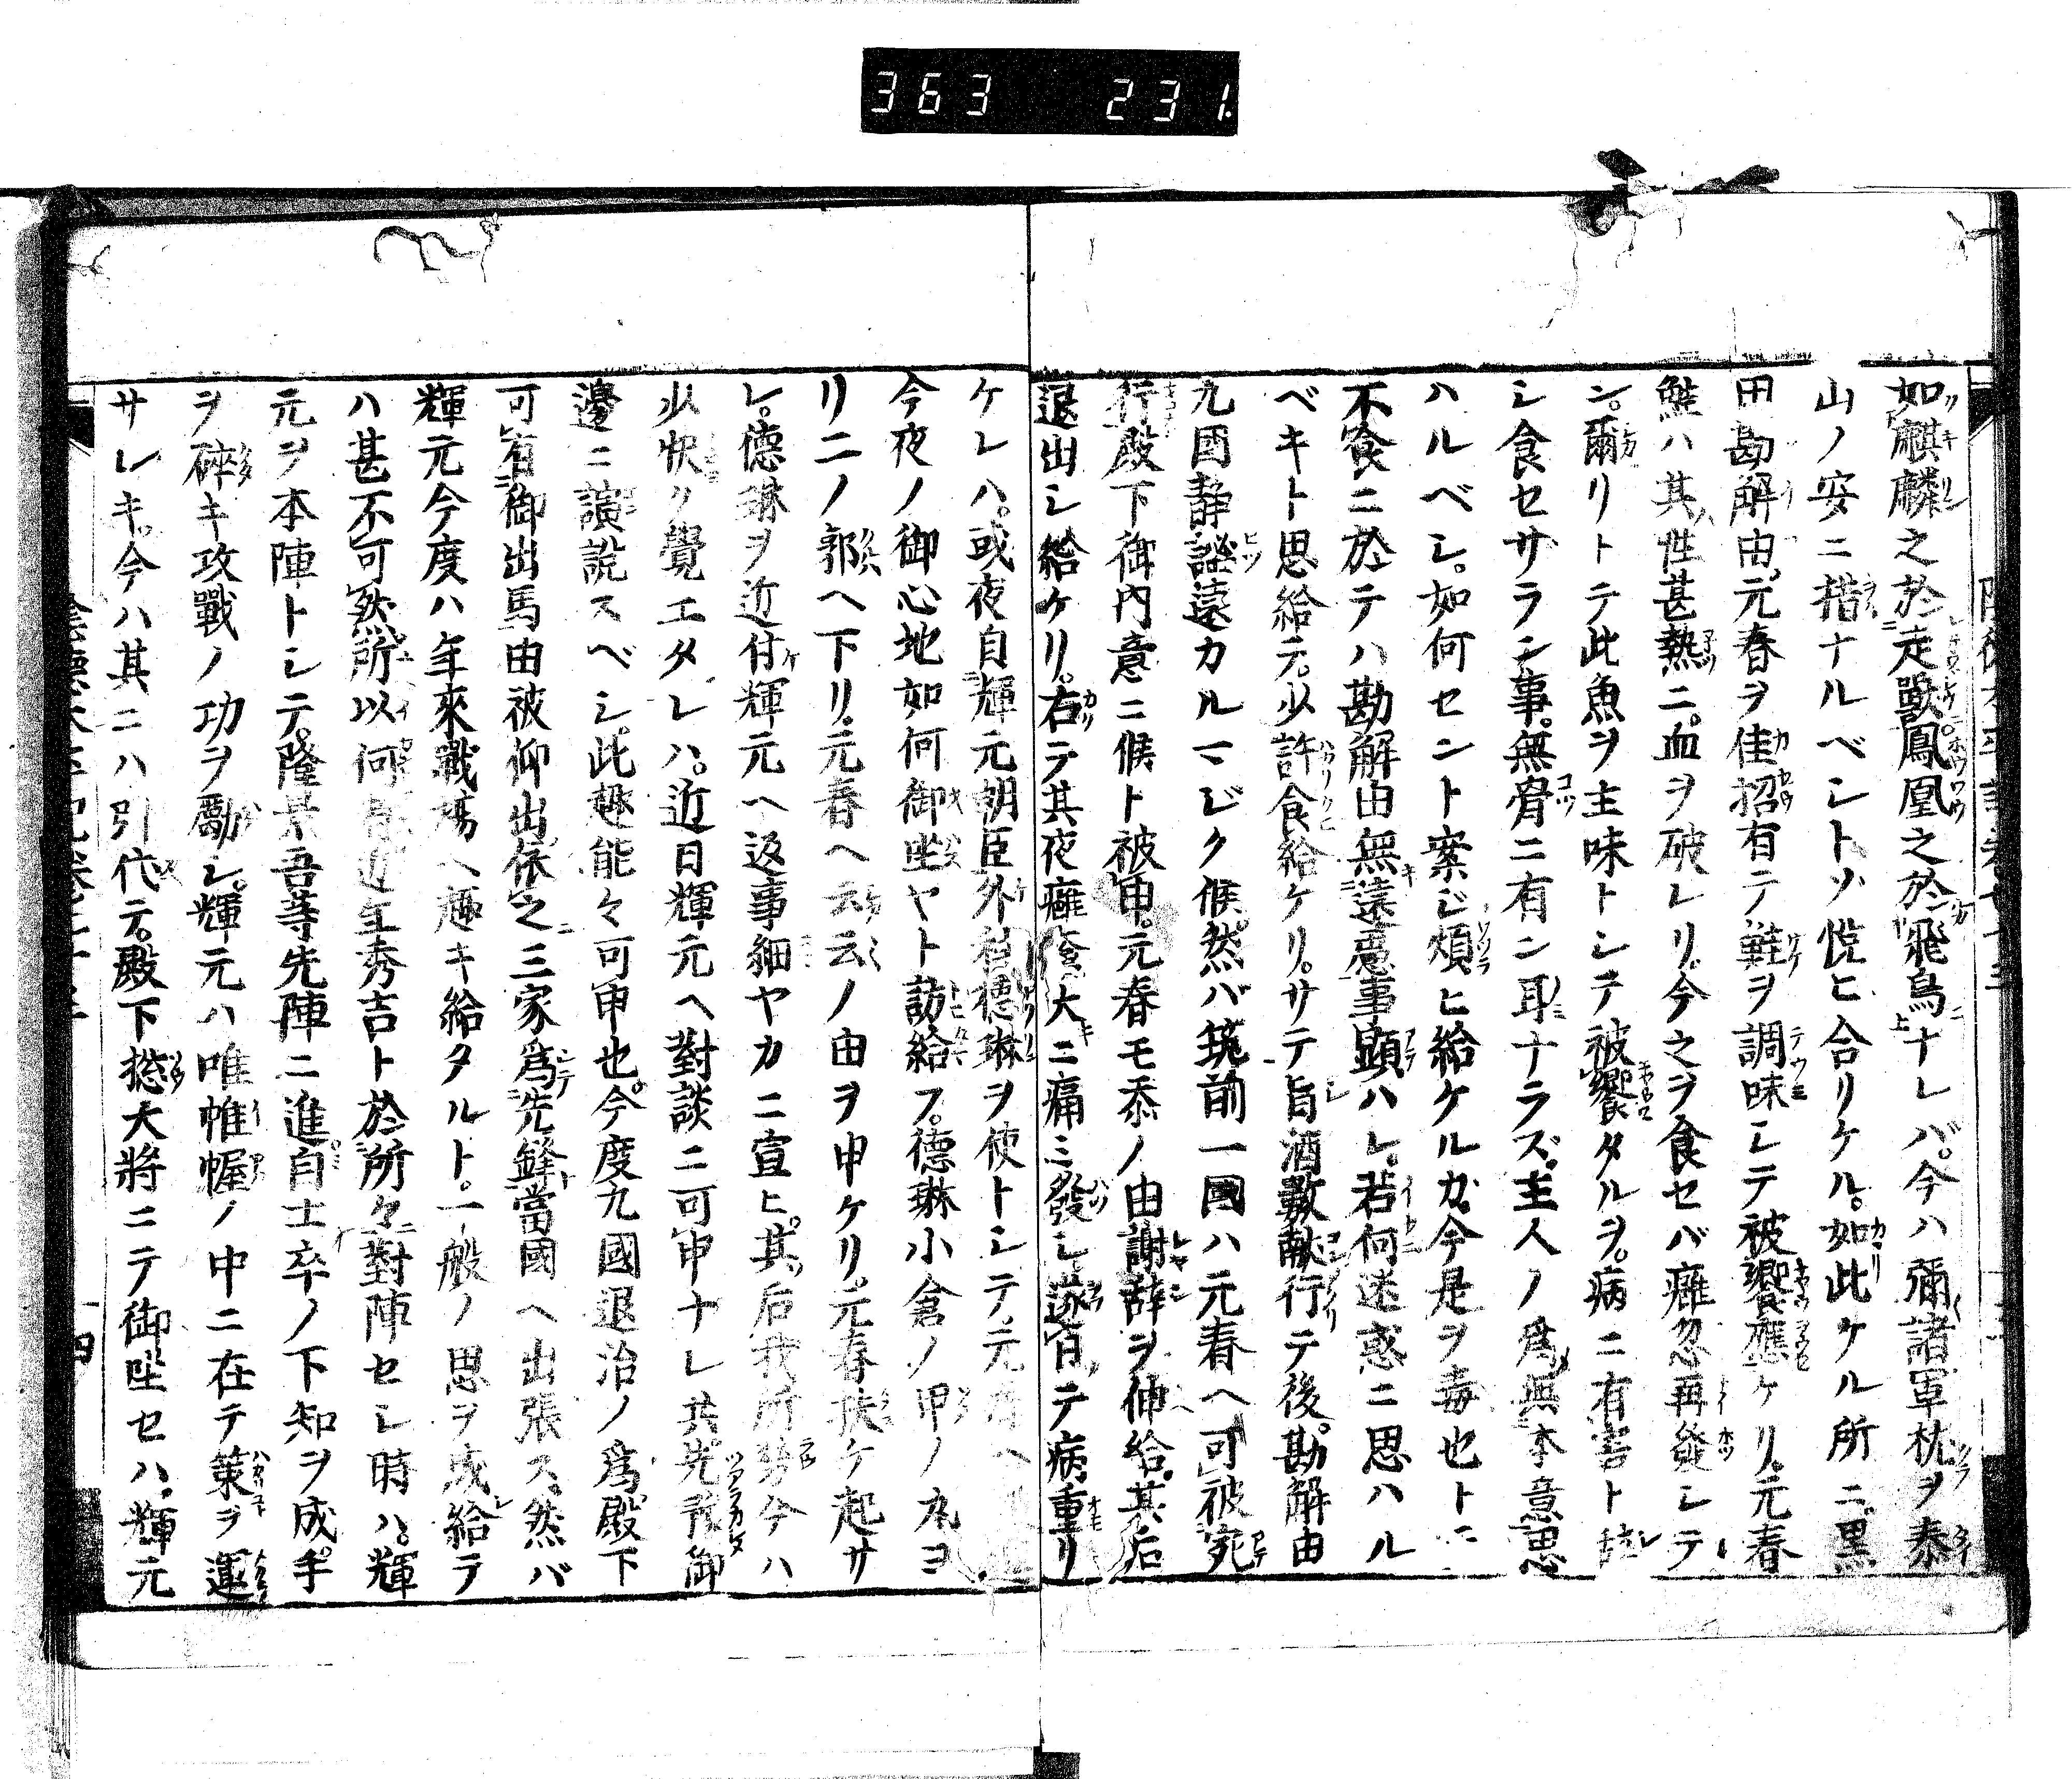 363 231
如麒麟之於走獸鳳凰之於飛鳥ナレバ。今ハ彌諸軍枕ヲ泰
山ノ安ニ措ナルベシトソ悦ヒ合リケル。如此ケル所ニ。黒
田勘解由。元春ヲ佳招有テ鮭ヲ調味シテ被饗應ケリ。元春
鮭ハ其性甚熱ニ。血ヲ破レリ。今之ヲ食セバ癰忽再發シテ
ン。爾リトテ此魚ヲ主味トシテ被饗タルヲ。病ニ有害ト
シ食セサラン事。無骨ニ有ン耳ナラズ。主人ノ爲無本意思
ハルベシ。如何セント案ジ煩ヒ給ケルガ。今是ヲ毒也トニ
不食ニ於テハ勘解由無遠慮事顕ハレ。若何迷惑ニ思ハル
ベキト思給テ。少許食給ケリ。サテ旨酒數献行テ後。勘解由
九国静謐遠カルマジク候。然バ筑前一國ハ元春ヘ可被宛
行殿下御内意ニ候ト被申。元春モ忝ノ由謝辞ヲ伸給。其后
退出シ給ケリ。右テ其夜癰瘡大ニ痛ミ發シ。逐日テ病重リ
ケレハ。或夜自輝元朝臣外 德琳ヲ使トシテ。元春ヘ
今夜ノ御心地如何御坐ヤト訪給フ。德琳小倉ノ甲ノ丸ヨ
リ二ノ郭ヘ下リ。元春ヘ云云ノ由ヲ申ケリ。元春扶ケ起サ
レ。德琳ヲ近付輝元ヘ返事細ヤカニ宣ヒ。其后我所勞今ハ
少快ク覺エタレハ。近日輝元ヘ對談ニ可申ナレ共。先 御
邊ニ演説スベシ。此趣能々可申也。今度九國退治ノ爲。殿下
可有御出馬由被仰出。依之三家爲先鋒當國ヘ出張ス。然バ
輝元今度ハ年來戰場ヘ趣キ給タルト。一般ノ思ヲ成給テ
ハ甚不可然。所以何 近年秀吉ト於所々對陣セシ時ハ。輝
元ヲ本陣トシテ。隆景吾等先陣ニ進。自士卒ノ下知ヲ成。手
ヲ碎キ攻戰ノ功ヲ勵シ。輝元ハ唯帷幄ノ中ニ在テ策ヲ運
サレキ。今ハ其ニハ引代テ。殿下揔大將ニテ御坐セハ。輝元
四